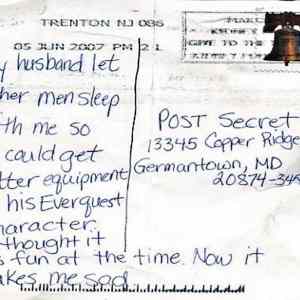 TRENTON NJ 086
05 JUN 2007 PM 2 L
GIVE TO THE
y husband let
her men sleep
th me so
could get
tter equipment
his Everquest
haracter.
thought it
s fun at the time. Now it
akes me sad
POST Secret
13345 Copper Ridge
Germantown, MD
20874-345